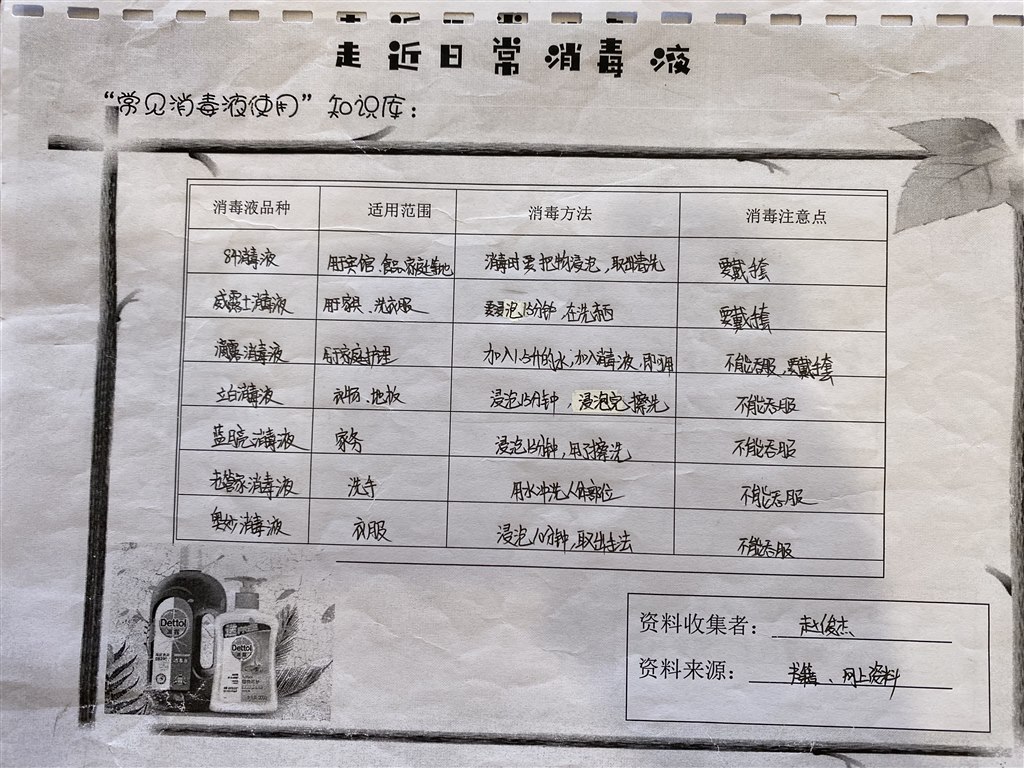 走近日常消毒液
“常见消毒液使用”知识库：
消毒液品种 适用范围 消毒方法 消毒注意点
84消毒液 用宾馆、食品、家庭等地 消毒时要把物浸泡，取出清洗 要戴手套
威露士消毒液 用家具、洗衣服 要浸泡15分钟，在洗东西 要戴手套
滴露消毒液 用于家庭护理 加入1.5升的水，加入消毒液，即可用 不能吞服，要戴手套
立白消毒液 衣物、地板 浸泡15分钟，浸泡完擦洗 不能吞服
蓝月亮消毒液 家务 浸泡15分钟，用于擦洗 不能吞服
老管家消毒液 洗手 用水冲洗人体部位 不能吞服
奥妙消毒液 衣服 浸泡10分钟，取出 不能吞服
Dettol
Dettol
资料收集者：赵俊杰
资料来源：书籍、网上资料